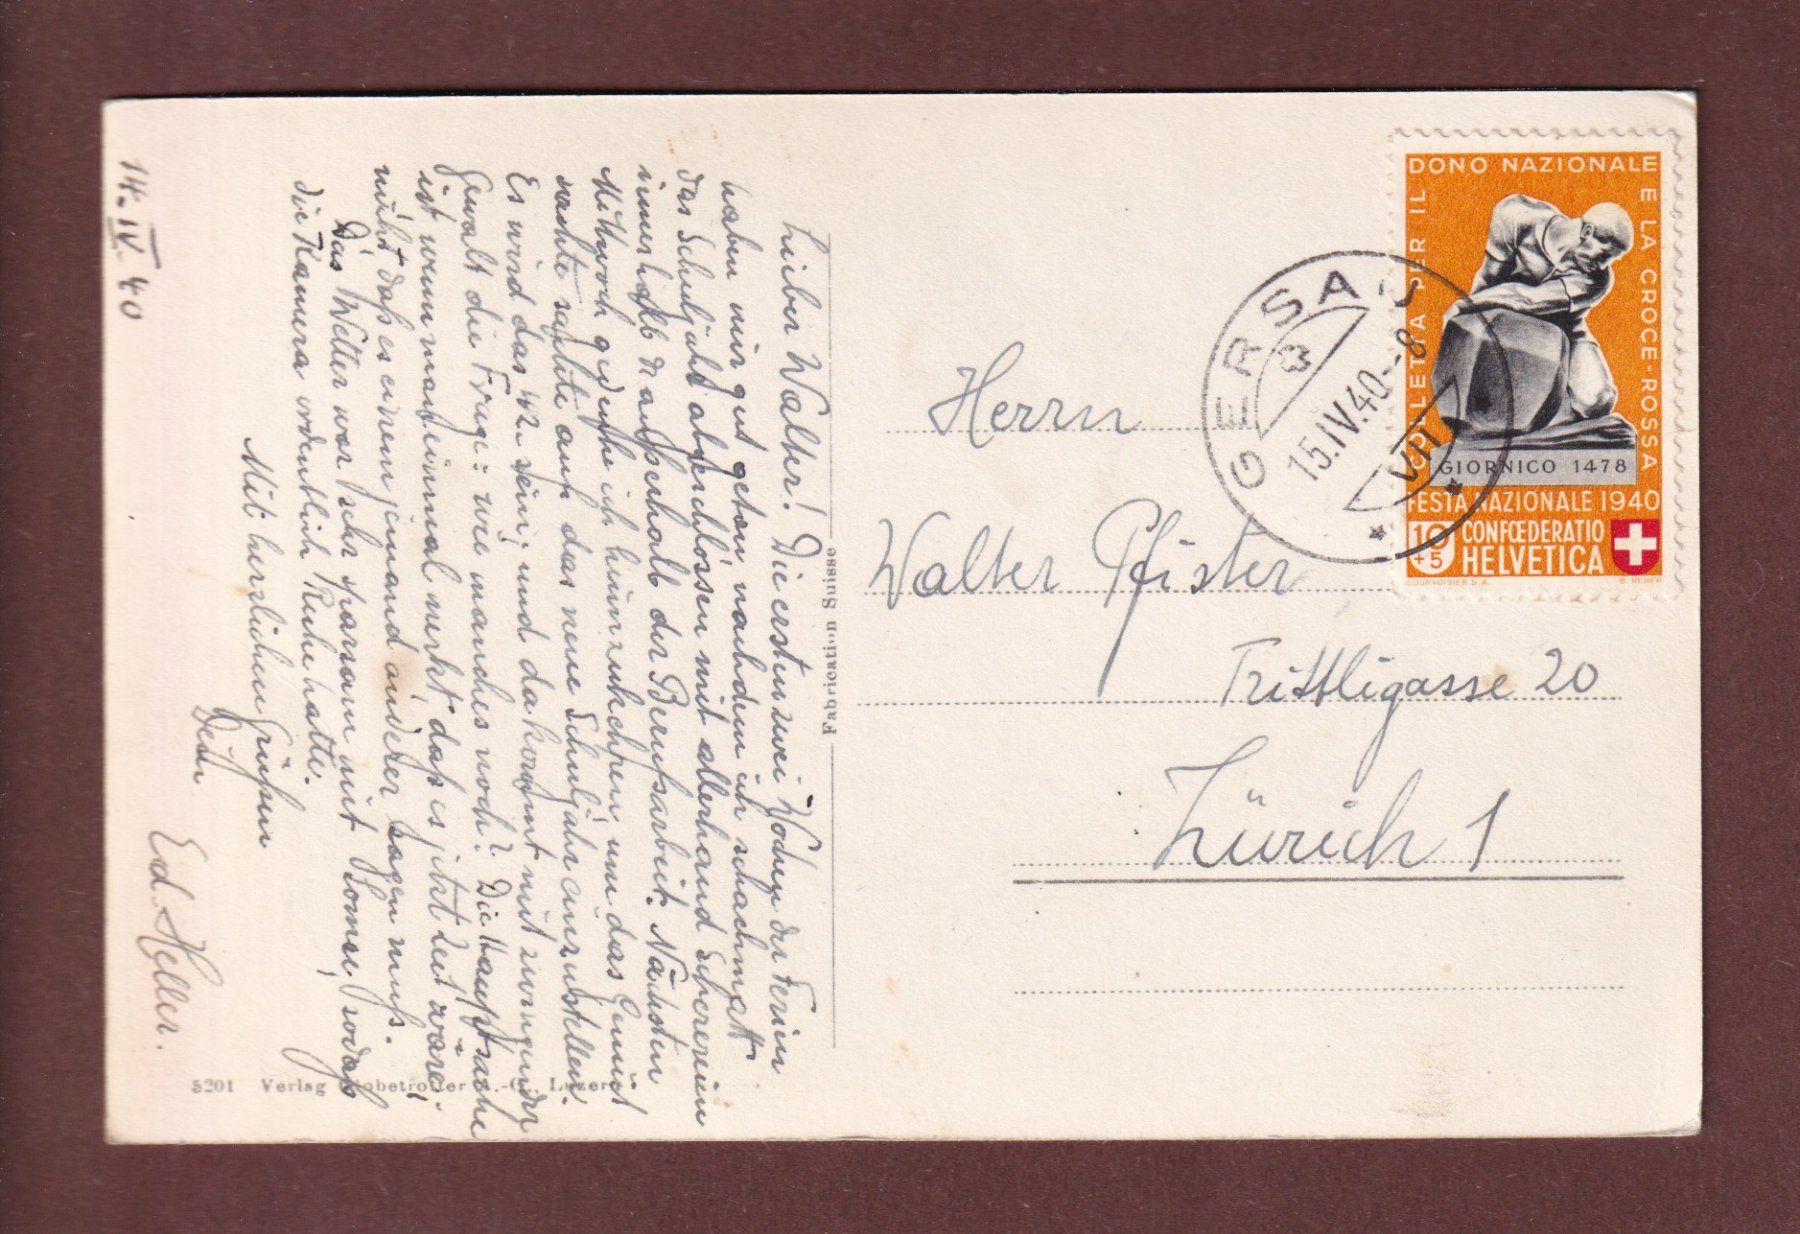 14. IV. 40
Lieber Walter! Die ersten zwei Wochen der Ferien
haben mir gut getan, nachdem ich schachmatt
das Schuljahr abgeschlossen mit allerhand Scherereien
innerhalb & ausserhalb der Berufsarbeit. Nächsten
Mittwoch gedenke ich heimzukehren, um das Gemüt
sachte, sachte auf das neue Schuljahr einzustellen.
Es wird das 42. sein; und da kommt mit zwingender
Gewalt die Frage: wie manches noch? Die Hauptsache
ist wenn man einmal merkt, dass es jetzt Zeit wäre;
nicht dass es einem jemand anderer sagen muss.
Das Wetter war sehr sparsam mit Sonne, sodass
die Kamera ordentlich Ruhe hatte.
Mit herzlichen Grüssen
Dein
Ed. Heller.
5201 Verlag Globetrotter Luzern
Fabrication Suisse
Herrn
Walter Pfister
Trittligasse 20
Zürich 1
GERSAU
15.IV.40.-8
VII
COLLETTA PER IL DONO NAZIONALE E LA CROCE-ROSSA
GIORNICO 1478
FESTA NAZIONALE 1940
10 +5
CONFŒDERATIO
HELVETICA
COURVOISIER S.A.
B. REBER